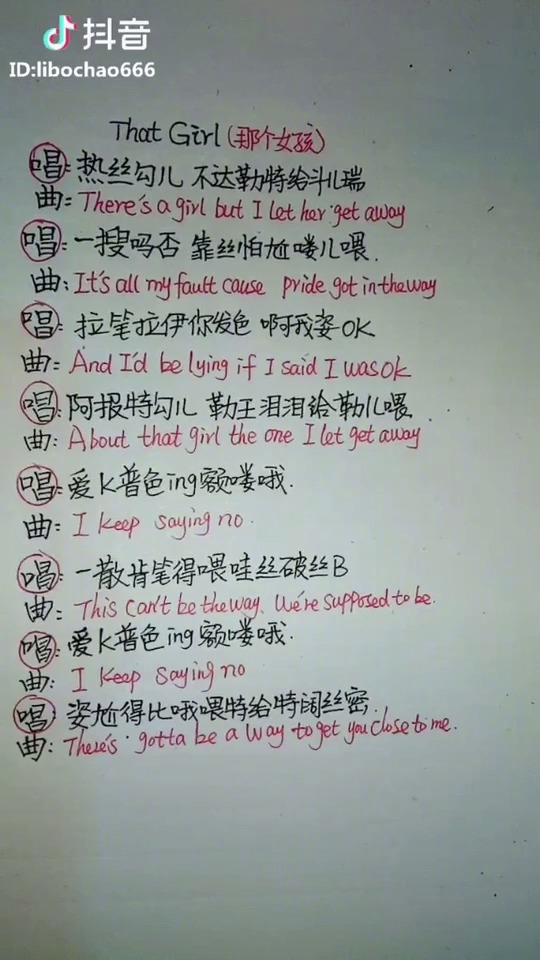 抖音
ID:libochao666
That Girl(那个女孩)
唱:热丝勾儿 不达勒特给斗儿瑞
曲:There's a girl but I let her get away
唱:一搜吗否 靠丝怕尬喽儿喂.
曲:It's all my fault cause pride got in the way
唱:拉笔拉伊你发色 啊我姿OK
曲:And I'd be lying if I said I was ok
唱:阿报特勾儿 勒王泪泪给勒儿喂.
曲:About that girl the one I let get away
唱:爱K普色ing额喽哦.
曲:I keep saying no.
唱:一散肯笔得喂哇丝破丝B
曲:This can't be the way. We're supposed to be.
唱:爱K普色ing额喽哦.
曲:I keep saying no
唱:姿尬得比哦喂特给特阔丝密.
曲:There's gotta be a way to get you close to me.